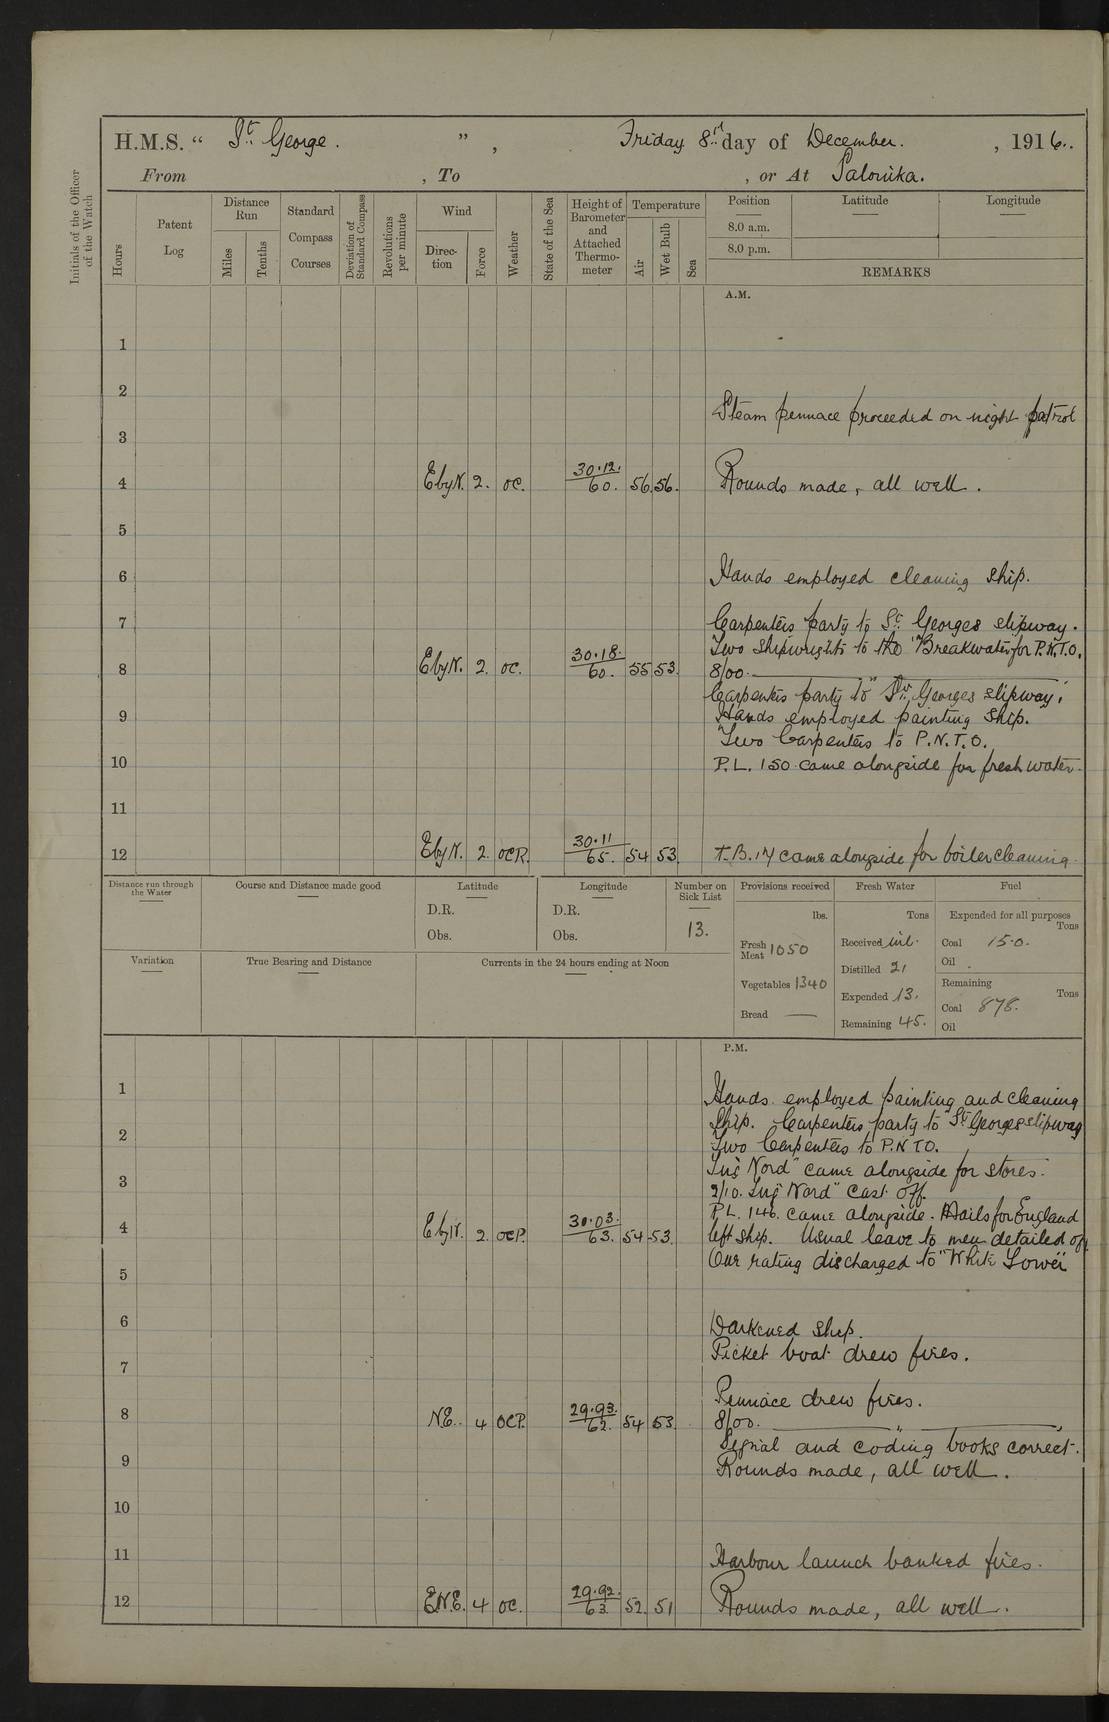 H.M.S. " St George. ", Friday 8th day of December. , 1916..
From , To , or At Salonika.
Initials of the Officer of the Watch
Hours
Patent Log
Distance Run
Miles
Tenths
Standard Compass Courses
Deviation of Standard Compass
Revolutions per minute
Wind
Direction
Force
Weather
State of the Sea
Height of Barometer and Attached Thermometer
Temperature
Air
Wet Bulb
Sea
Position
8.0 a.m.
8.0 p.m.
Latitude
Longitude
REMARKS
A.M.
1
2
Steam pennace proceeded on night patrol
3
4 EbyN. 2. oc. 30.12. 60. 56. 56. Rounds made, all well.
5
6 Hands employed cleaning ship.
7 Carpenters party to St Georges slipway.
Two shipwrights to the "Breakwater for P.N.T.O.
8 EbyN. 2. oc. 30.18. 60. 55 53. 8/00.
Carpenters party to "St Georges slipway.
9 Hands employed painting ship.
Two Carpenters to P.N.T.O.
10 P.L. 150 came alongside for fresh water.
11
12 EbyN. 2. ocR. 30.11 65. 54 53. T.B. 17 came alongside for boiler cleaning.
Distance run through the Water
Course and Distance made good
Latitude
D.R.
Obs.
Longitude
D.R.
Obs.
Number on Sick List
13.
Provisions received
lbs.
Fresh Meat 1050
Vegetables 1340
Bread —
Fresh Water
Tons
Received nil.
Distilled 21
Expended 13.
Remaining 45.
Fuel
Expended for all purposes
Tons
Coal 15.0.
Oil .
Remaining
Tons
Coal 878.
Oil
Variation
True Bearing and Distance
Currents in the 24 hours ending at Noon
P.M.
1 Hands employed painting and cleaning
ship. Carpenters party to "St Georges slipway
2 Two Carpenters to P.N.T.O.
Tug "Nord" came alongside for stores.
3 2/10. Tug "Nord" cast off.
P.L. 146. came alongside. Mails for England
4 EbyN. 2. ocP. 30.03. 63. 54 53. left ship. Usual leave to men detailed off.
One rating discharged to "White Tower"
5
6 Darkened ship.
7 Picket boat drew fires.
Pennace drew fires.
8 NE. 4 OCP. 29.93. 62. 54 53. 8/00. "
Signal and coding books correct.
9 Rounds made, all well.
10
11 Harbour launch banked fires.
12 ENE. 4 oc. 29.92. 63. 52. 51 Rounds made, all well.